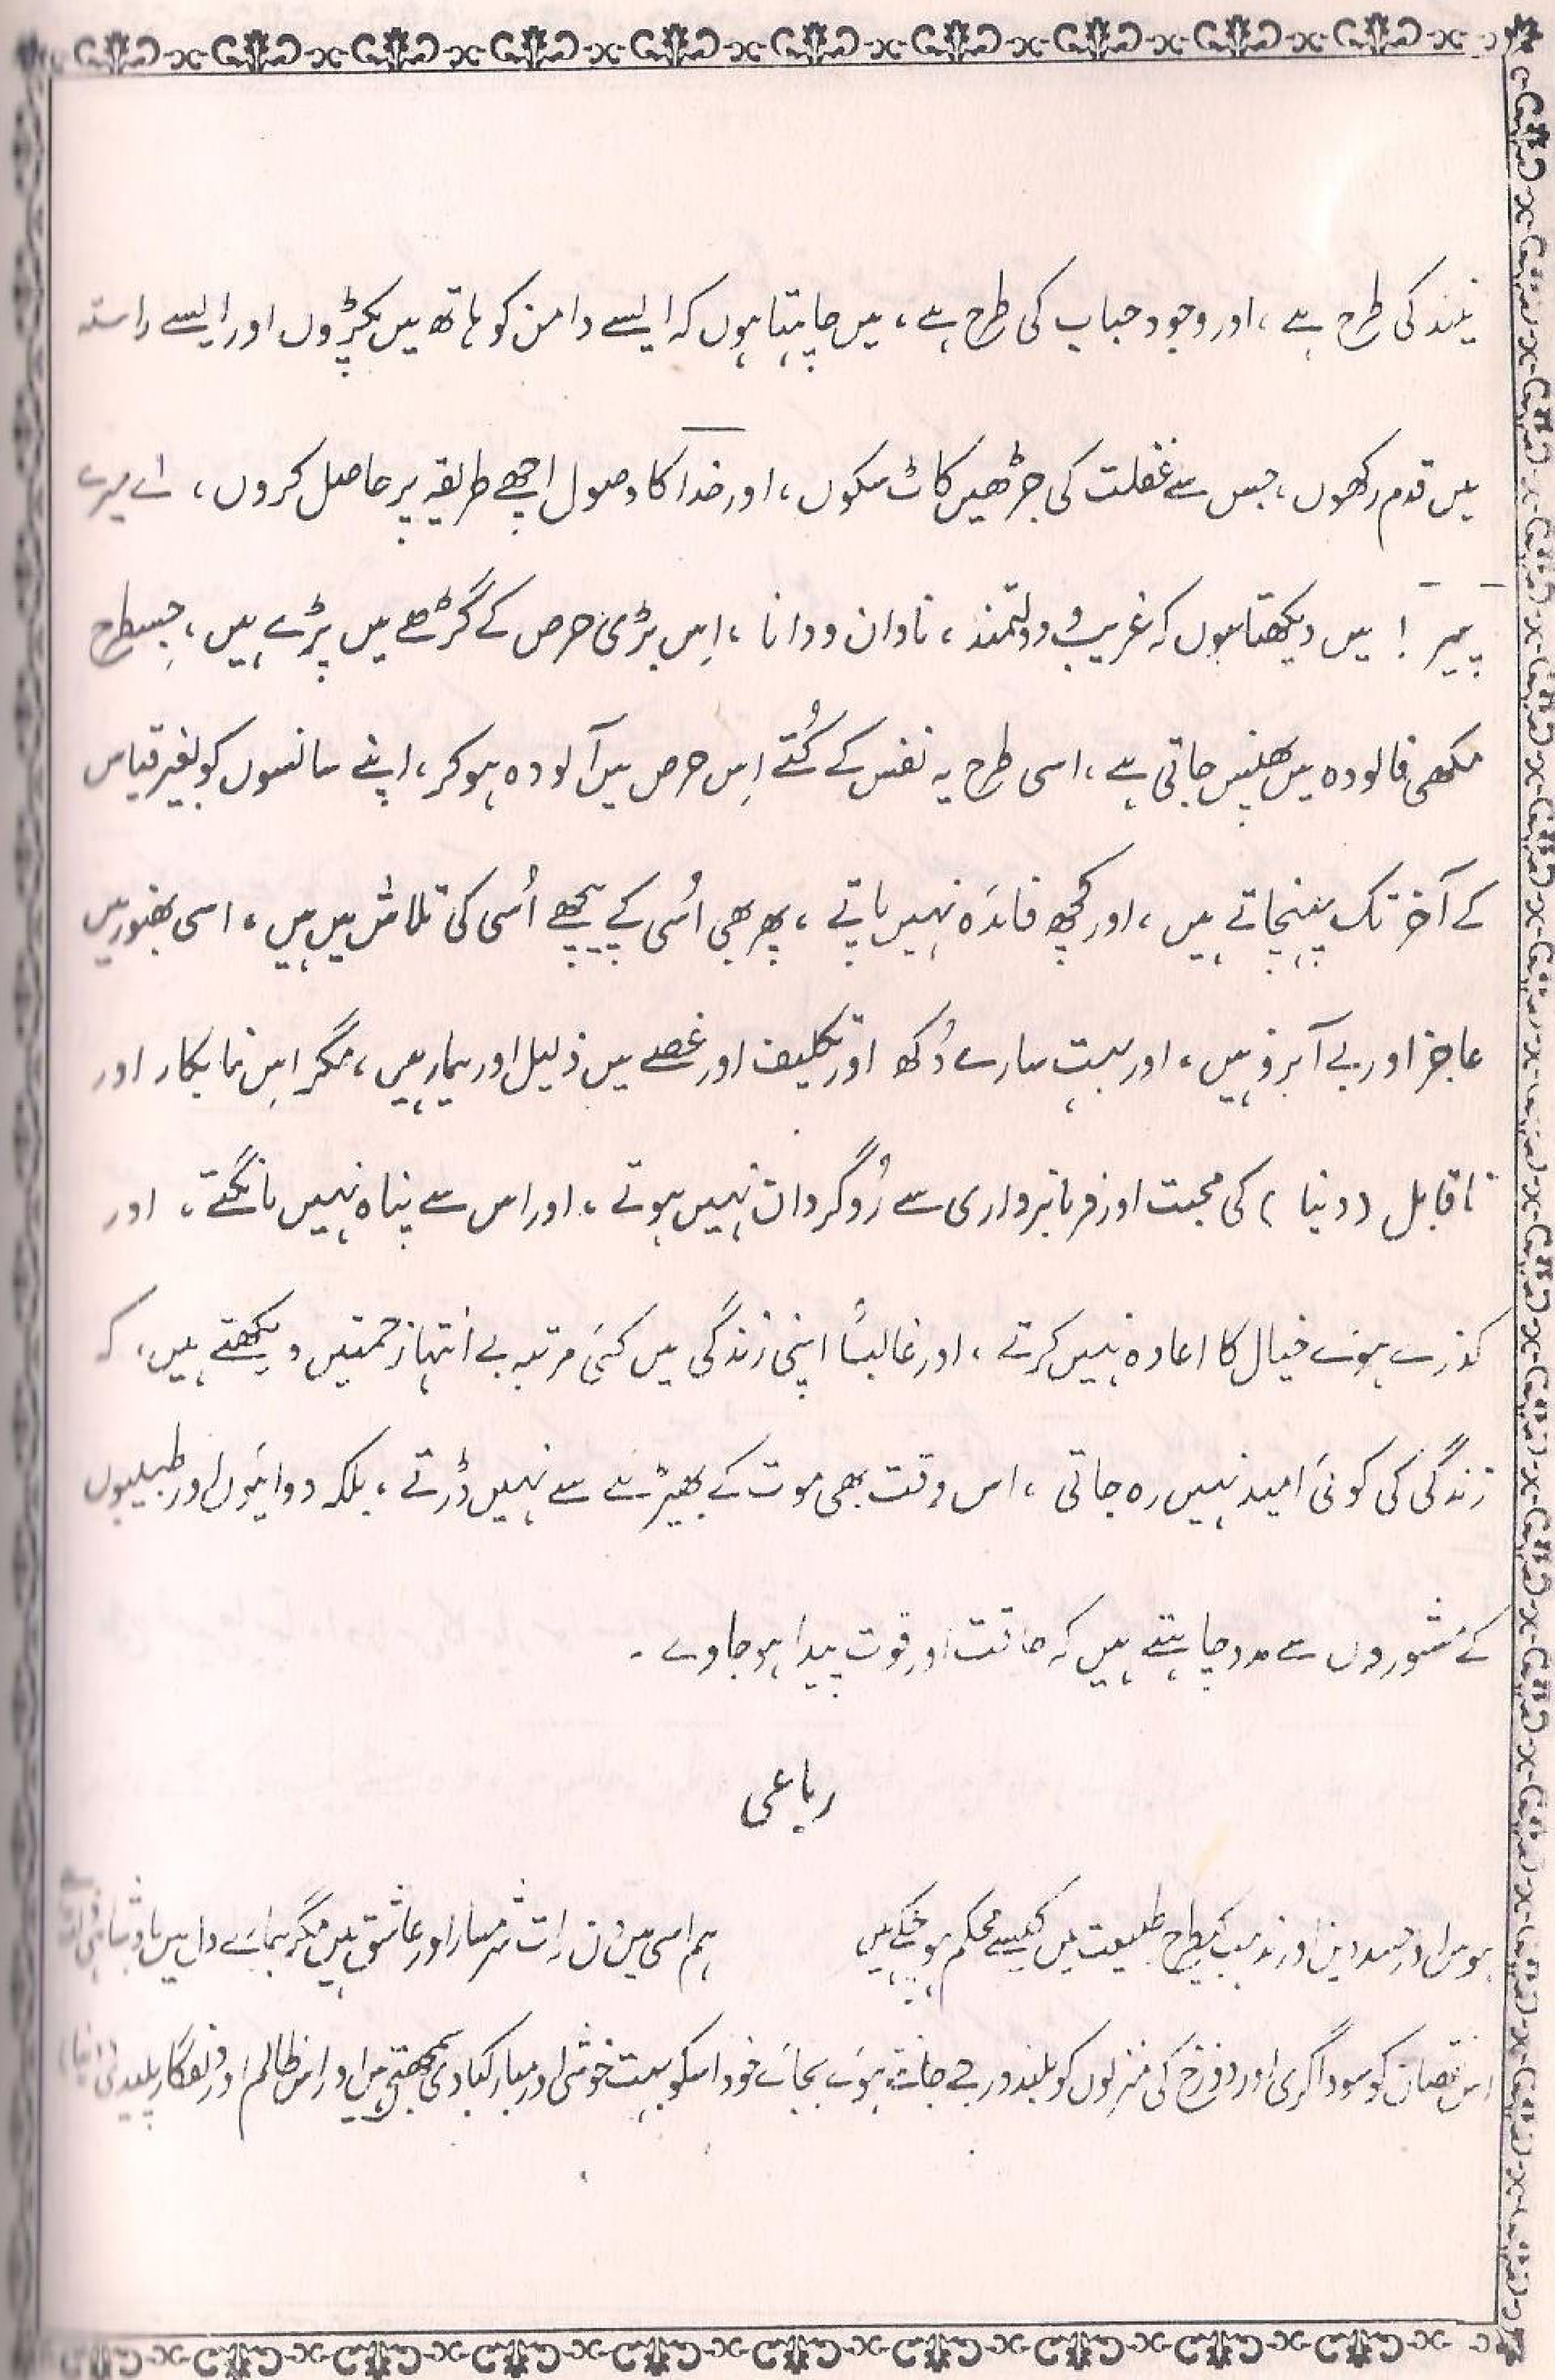 نیند کی طرح ہے ، اور وجود حباب کی طرح ہے ، میں چاہتا ہوں کہ ایسے دامن کو ہاتھ میں پکڑوں اور ایسے راستہ
میں قدم رکھوں ، جس سے غفلت کی جڑھیں کاٹ سکوں ، اور خدا کا وصول اچھے طریقہ پر حاصل کروں ، اے میرے
پیر ! میں دیکھتا ہوں کہ غریب و دولتمند ، نادان و دانا ، اِس بڑی حرص کے گڑھے میں پڑے ہیں ، جِسطرح
مکھی فالودہ میں پھنس جاتی ہے ، اسی طرح یہ نفس کے کُتے اِس حرص میں آلودہ ہو کر ، اپنے سانسوں کو بغیر قیاس
کے آخر تک پہنچاتے ہیں ، اور کچھ فائدہ نہیں پاتے ، پھر بھی اُسی کے پیچھے اُسی کی تلاش میں ہیں ، اسی بھنور میں
عاجز اور بے آبرو ہیں ، اور بہت سارے دُکھ اور تکلیف اور غصے میں ذلیل اور بیمار ہیں ، مگر اِس نابکار اور
ناقابل ( دنیا ) کی محبت اور فرمانبرداری سے رُوگردان نہیں ہوتے ، اور اس سے پناہ نہیں مانگتے ، اور
گذرے ہوئے خیال کا اعادہ نہیں کرتے ، اور غالباً اپنی زندگی میں کئی مرتبہ بے انتہا زحمتیں دیکھتے ہیں ، کہ
زندگی کی کوئی امید نہیں رہ جاتی ، اس وقت بھی موت کے بھیڑئے سے نہیں ڈرتے ، بلکہ دوائیوں اور طبیبوں
کے مشوروں سے مدد چاہتے ہیں کہ طاقت اور قوت پیدا ہو جاوے ۔
رباعی
ہوس اور حسد دین اور مذہب کیطرح طبیعت میں کیسے محکم ہو چکے ہیں ہم اسی میں دن رات شرمسار اور عاشق ہیں مگر ہمارے دل میں
اس نقصان کو سوداگری اور دوزخ کی منزلوں کو بلند درجے جانتے ہوئے بجائے خود اسکو بہت خوشی اور مبارکبادی سمجھتے ہیں اور اس ظالم اور